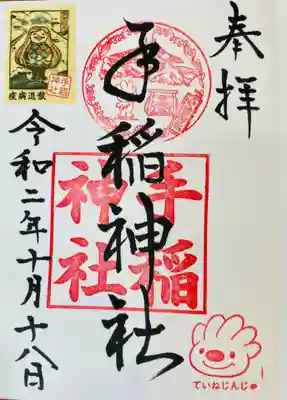 奉拝
手稲神社
手稲
神社
ていねじんじゃ
令和二年十月十八日
疫病退散
手稲
神社